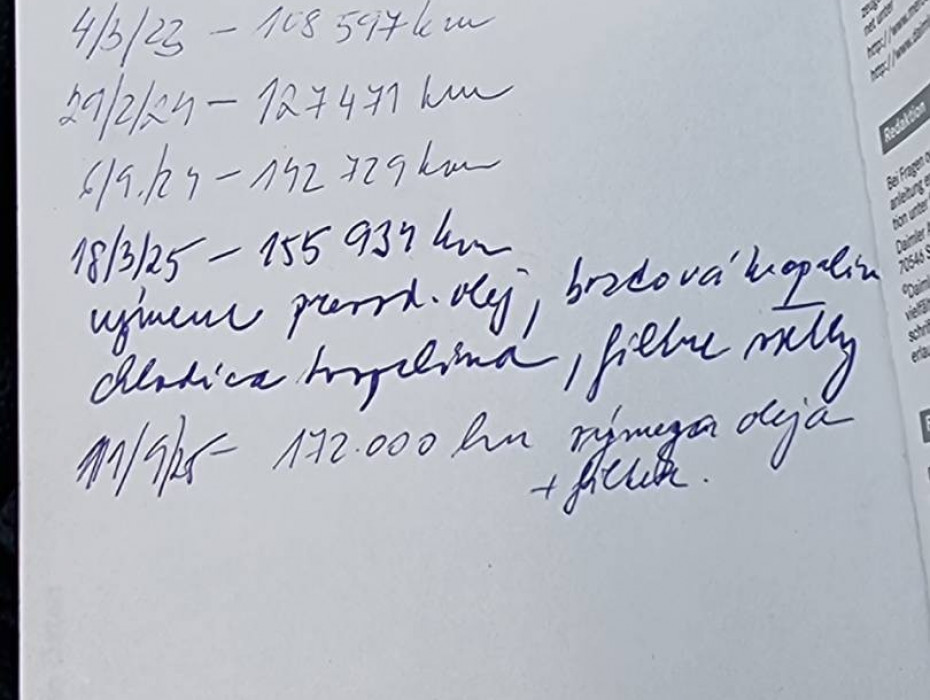 4/3/23 - 108 597 km
29/2/24 - 127 471 km
6/9/24 - 142 729 km
18/3/25 - 155 934 km
výmena prevod. olej, brzdová kvapalina
chladica kvapalina, filtre všetky
11/9/25 - 172.000 km výmena oleja
+ filter.
http://www.
http://www.daim
Redaktion
Bei Fragen o
anleitung e
tion unter
Daimler
70546 S
©Daiml
vielfäl
schrift
erlau